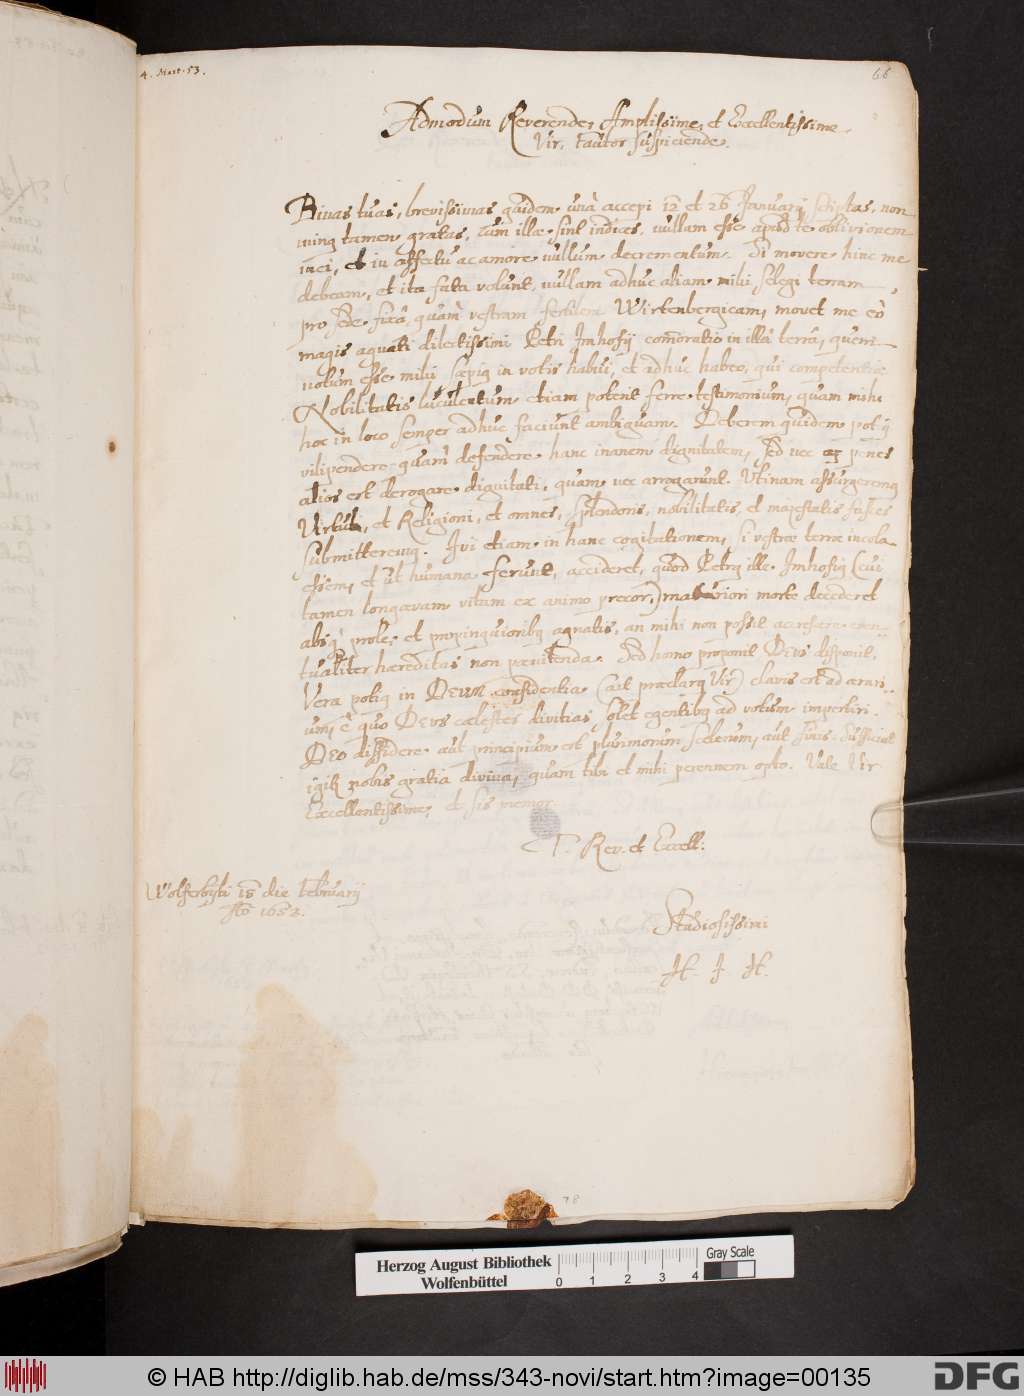 4. Mart. 53.
66
Admodum Reverende, Amplissime, et Excellentissime
Vir, fautor suspiciende.
Binas tuas, brevissimas quidem unà accepi 12 et 26 Januarij scriptas, non
minus tamen gratas, cum illae sint indices, nullam esse apud te oblivionem
mei, et in affectu ac amore nullum decrementum. Si movere hinc me
debeam, et ita fata volunt, nullam adhuc aliam mihi selegi terram,
pro sede fixâ, quàm vestram fertilem Wirtenbergicam, movet me eò
magis agnati dilectissimi Petri Imhofij com̄oratio in illâ terrâ, quem
notum esse mihi saepiq in votis habui, et adhuc habeo, qui competentis
Nobilitatis luculentum etiam poterit ferre testimonium, quam mihi
hoc in loco semper adhuc faciunt ambiguam. Deberem quidem potiq
vilipendere quam defendere hanc inanem dignitatem, sed nec penes
alios est derogare dignitati, quam nec arrogarunt. Utinam assurgeremq
Virtuti, et Religioni, et omnes, splendoris, nobilitatis, et majestatis fasces
submitteremq. Ivi etiam in hanc cogitationem, si vestrae terrae incola
essem, et ut humana ferunt, accideret, quod Petrq ille Imhofiq (cui
tamen longaevam vitam ex animo precor,) maturiori morte decederet
absq prole, et propinquioribq agnatis, an mihi non possit accrescere even-
tualiter haereditas non poenitenda. Sed homo proponit DEUS disponit.
Vera potiq in DEUM confidentia (ait praeclarq Vir) clavis est ad aerari-
um, è quo DEUS caelestes divitias solet egentibq ad votum impertiri.
DEO diffidere aut principium est plurimorum scelerum, aut finis. Sufficiat
igit nobis gratia divina, quam tibi et mihi perennem opto. Vale Vir
Excellentissime, et sis memor
T. Rev. et Excell:
Wolferbyti 15 die Februarij
Ao 1653.
Studiosissimi
H. J. H.
78
Herzog August Bibliothek
Wolfenbüttel
0 1 2 3 4
Gray Scale
© HAB http://diglib.hab.de/mss/343-novi/start.htm?image=00135
DFG